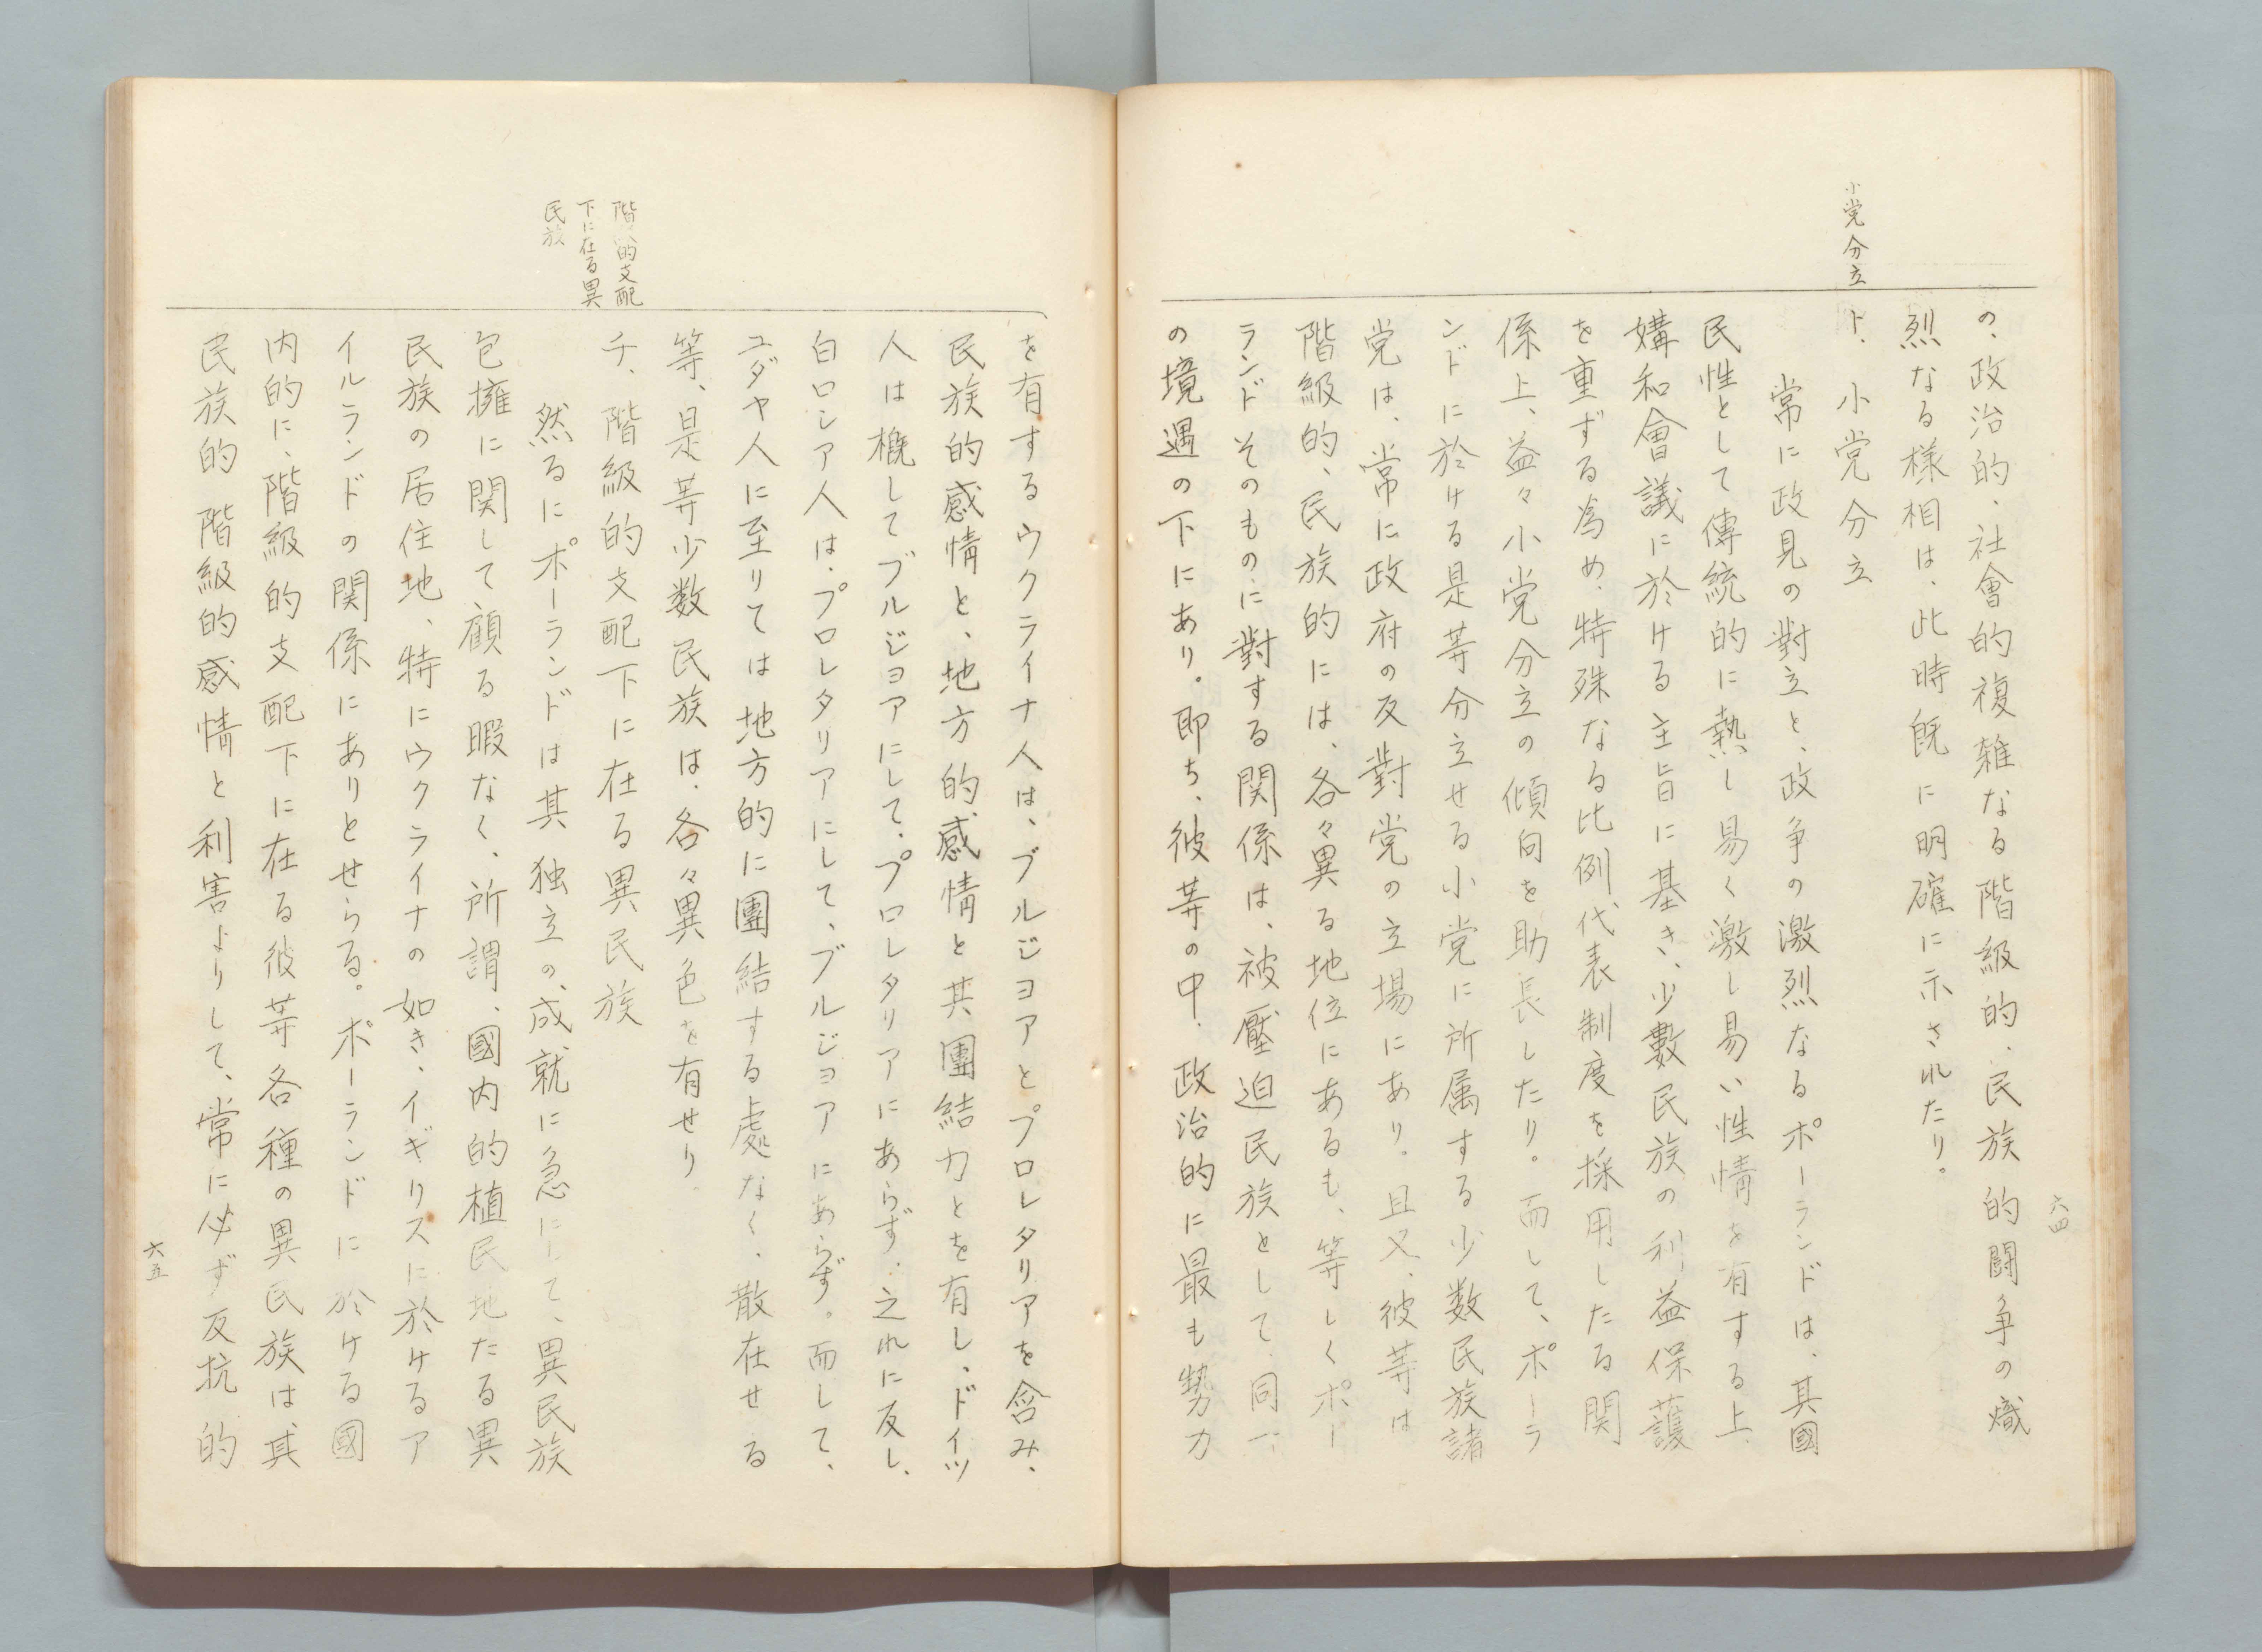 小党分立
の、政治的、社會的複雑なる階級的、民族的闘争の熾
烈なる様相は、此時既に明確に示されたり。
ト、小党分立
常に政見の對立と、政争の激烈なるポーランドは、其國
民性として傳統的に熱し易く激し易い性情を有する上、
媾和會議に於ける主旨に基き、少數民族の利益保護
を重ずる為め、特殊なる比例代表制度を採用したる関
係上、益々小党分立の傾向を助長したり。而して、ポーラ
ンドに於ける是等分立せる小党に所属する少数民族諸
党は、常に政府の反對党の立場にあり。且又、彼等は
階級的、民族的には、各々異る地位にあるも、等しくポー
ランドそのものに對する関係は、被壓迫民族として同一
の境遇の下にあり。即ち、彼等の中、政治的に最も勢力
六四
階級的支配
下に在る異
民族
を有するウクライナ人は、ブルジョアとプロレタリアを含み、
民族的感情と、地方的感情と其團結力とを有し、ドイツ
人は概してブルジョアにして、プロレタリアにあらず、之れに反し、
白ロシア人は、プロレタリアにして、ブルジョアにあらず。而して、
ユダヤ人に至りては地方的に團結する處なく、散在せる
等、是等少数民族は、各々異色を有せり。
チ、階級的支配下に在る異民族
然るにポーランドは其独立の成就に急にして、異民族
包擁に関して顧る暇なく、所謂、國内的植民地たる異
民族の居住地、特にウクライナの如き、イギリスに於けるア
イルランドの関係にありとせらる。ポーランドに於ける國
内的に、階級的支配下に在る彼等各種の異民族は、其
民族的階級的感情と利害よりして、常に必ず反抗的
六五